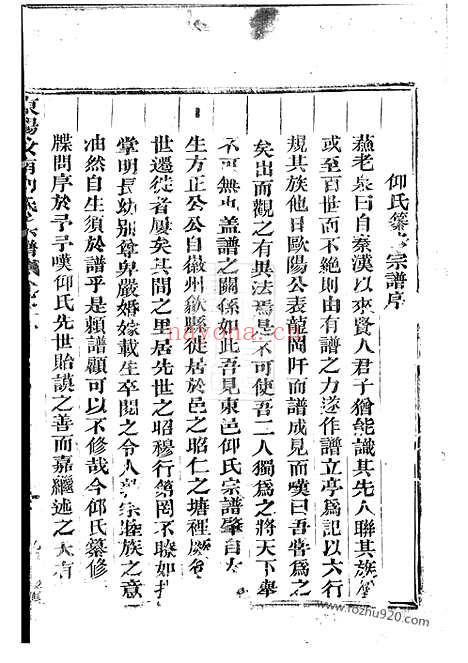 仰氏纂修宗譜序
蘓老泉曰自秦漢以來賢人君子猶能識其先人聯其族屬
或至百世而不絶則由有譜之力遂作譜立亭爲記以六行
規其族他日歐陽公表瀧岡阡而譜成見而嘆曰吾嘗爲之
矣出而觀之有異法焉是不可使吾二人獨爲之將天下舉
不可無也蓋譜之關係如此吾見東邑仰氏宗譜肇自
生方正公公自徽州歙縣徙居於邑之昭仁之塘裡
世遷徙者屢矣其間之里居先世之昭穆行第罔不
掌明長幼别尊卑嚴婚嫁載生卒閱之令人宗睦族之意
油然自生須於譜乎是頼譜顧可以不修哉今仰氏纂修
牒問序於予予嘆仰氏先世貽謨之善而嘉繼述之大有
東陽
nayona.cn
www.rozhu920.com